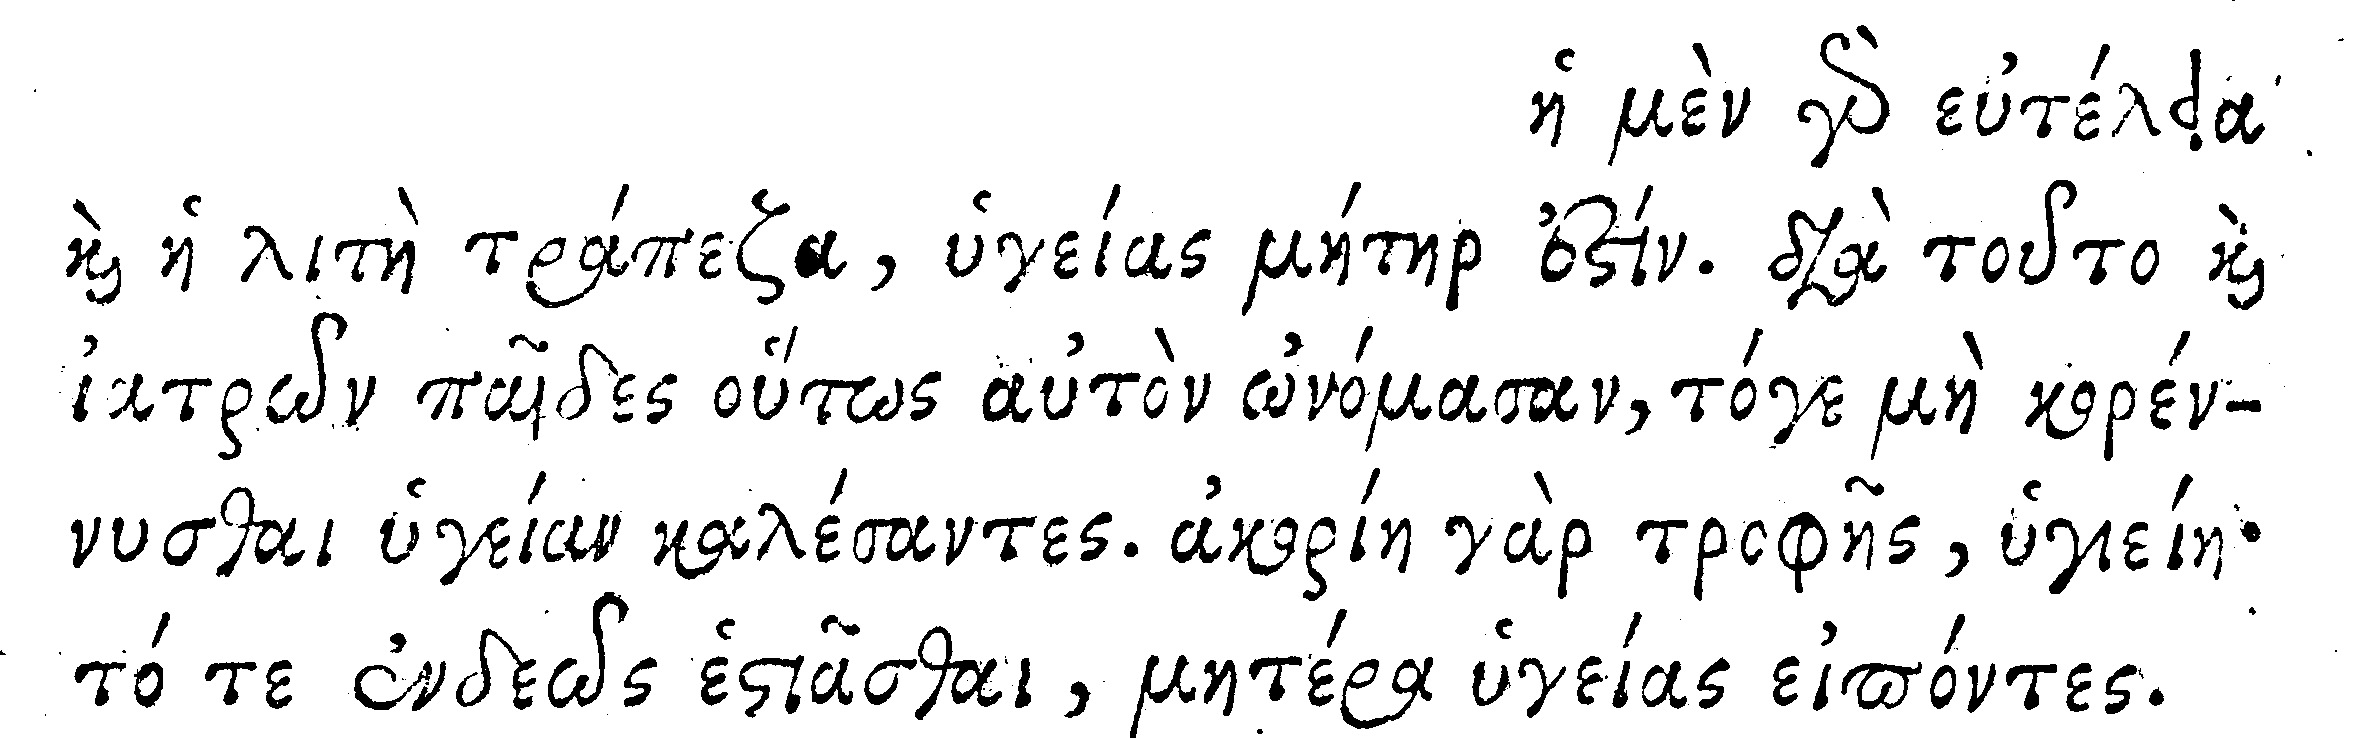 ἡ μὲν γὰρ εὐτέλεια
καὶ ἡ λιτὴ τράπεζα, ὑγείας μήτηρ ἐστίν. διὰ τοῦτο καὶ
ἰατρῶν παῖδες οὕτως αὐτὸν ὠνόμασαν, τόγε μὴ κορέν-
νυσθαι ὑγείαν καλέσαντες. ἀκορίη γὰρ τροφῆς, ὑγιείη·
τό τε ἐνδεῶς ἑστιᾶσθαι, μητέρα ὑγείας εἰπόντες.